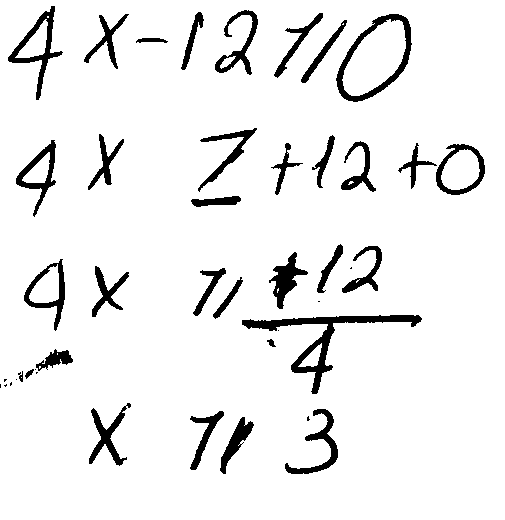 4x-12≥0
4x ≥ +12+0
4x ≥ +12/4
x ≥ 3